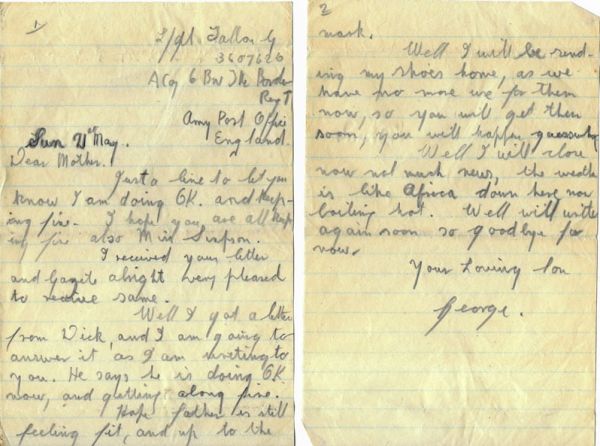 1
L/Sgt Fallon G
3607626
A Coy 6 Bn The Border
Regt
Army Post Office
England.
Sun 21st May.
Dear Mother.
Just a line to let you
know I am doing OK. and keep-
ing fine. I hope you, are all keep
ing fine also Miss Simpson.
I received your letter
and Gazette alright very pleased
to receive same.
Well I got a letter
from Dick, and I am going to
answer it as I am writing to
you. He says he is doing OK
now, and getting along fine.
Hope father is still
feeling fit, and up to the
2
mark.
Well I will be send-
ing my shoes home, as we
have no more use for them
now, so you will get them
soon, you will happen
Well I will close
now not much news, the weather
is like Africa down here now
boiling hot. Well will write
again soon so goodbye for
now.
Your Loving Son
George.